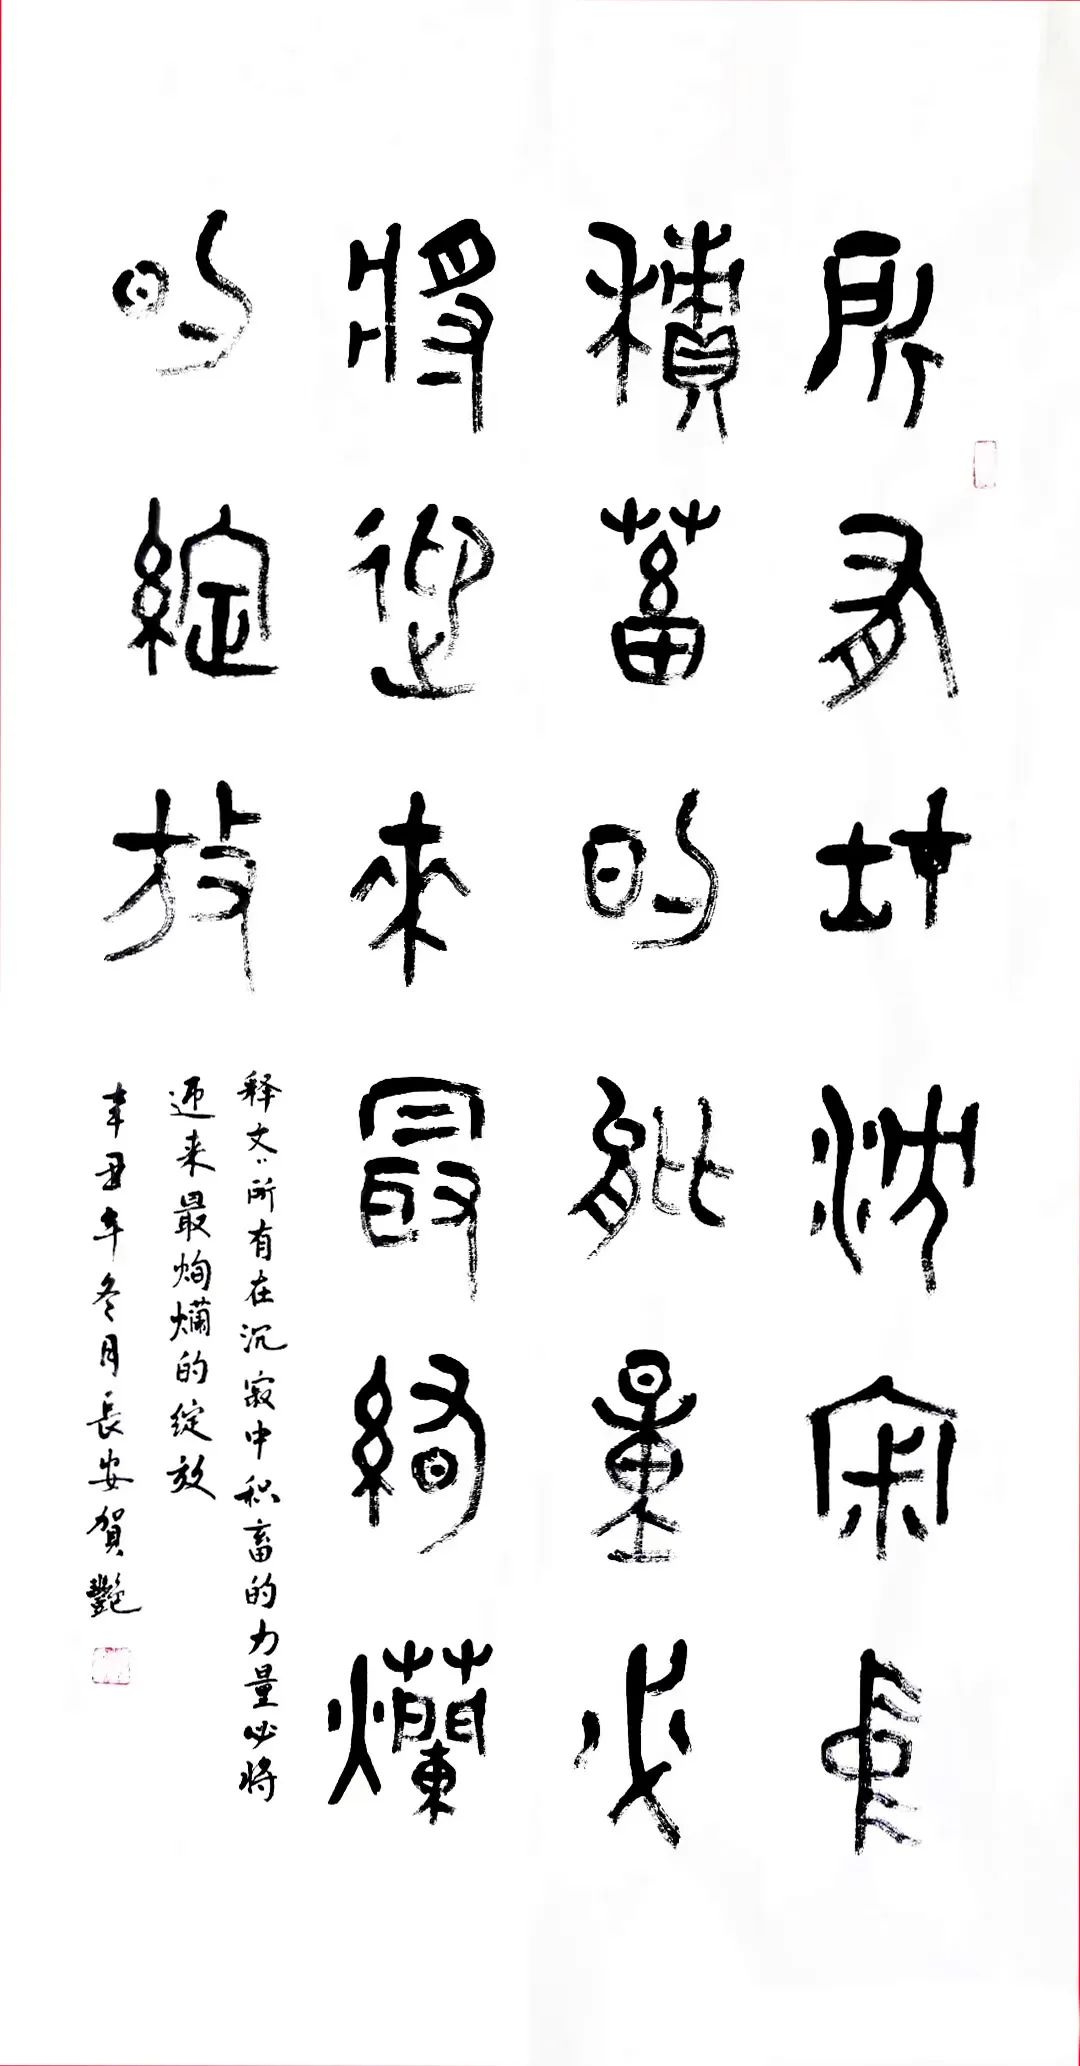 所有在沈寂中
積蓄的能量必
將迎來最絢爛
的綻放
释文：所有在沉寂中积畜的力量必将
迎来最绚爛的绽放
辛丑年冬月長安賀艷